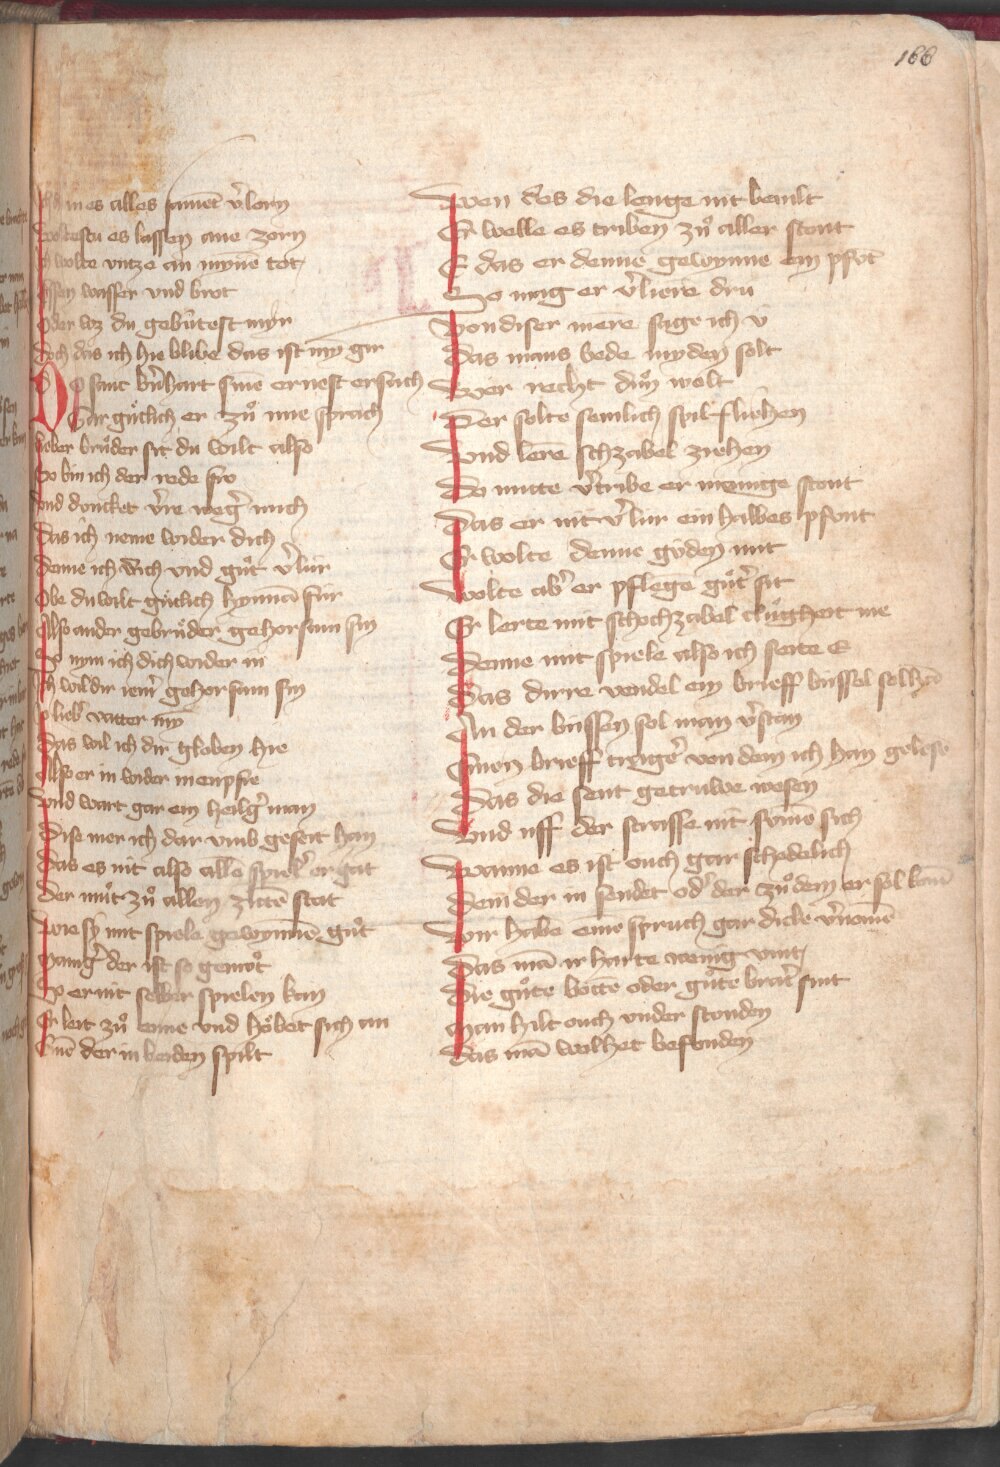 168
Ich han es alles sament v̾lorn
Woltestu es lassen ane zorn
Ich wolte vntze an mynē tot
Essen wasser vnd brot
Oder wz du gebútest myr
Doch das ich hie blibe das ist my̅ gir
Do sant bn̾hart sine ernest ersach
Gar gu̍tlich er zuͦ ime sprach
Lieber bruͦder sit du wilt also
So bin ich der rede fro
Vnd duncket v̾re weg̾ mich
Das ich neme wider dich
Denne ich dich vnd guͦt v̾lúr
Obe du wilt gu̍tlich hynnā fúr
Also ander gebruͦder gehorsam sin
So nym ich dich wider in
Ich wil dir iem̾ gehorsam sin
So lieb̾ vatter my
Das wil ich dir globen hie
Also er in wider in enpfie
Vnd wart gar ein heilg̾ man
Dise mer ich dar vmb geseit han
Das es nit also allē spiel̾ ergat
Der muͦt zuͦ allen zittē stat
Wie sy mit spiele gewynnē guͦt
Manig̾ der ist so gemoͦt
So er nit selber spielen kan
Er leit zuͦ eime vnd hoͤbet sich an
Eine der in beiden spilt
Wen des die lenge nit beuilt
Er welle es triben zuͦ aller stont
E das er denne gewynne ein pfōt
So mag er v̾liere dru
Von diser mere sage ich v
Das mans bede myden solt
Wer recht duͦn wolt
Der solte semlich spil fliehen
Vnd lere schzabel ziehen
Do mitte v̾tribe er menige stont
Das er nit v̾lúr ein halbes pfont
Er wolte denne gýden mit
Wolte ab̾ er pflege guͦt̾ sit
Er lerte mit schochzabel cluͦgheit me
Denne mit spiele also ich seite E
Das dirre vendel ein brieff bússel sol han
An der bússen sol man v̾stan
Einen brieff trage̾ von dem ich han gelese
Das die sent getruwe wesen
Vnd uff der strasse nit sume sich
Wanne es ist ouch gar schedelich
Dem der in sendet od̾ der zuͦ dem er sol kam̄
Wir habe eine spruch gar dicke v̾nomē
Das mā ir harte wenig vint
Die guͦte botte oder guͦte brat̾ sint
Man hilt ouch vnder stonden
Das mā weilhet befunden